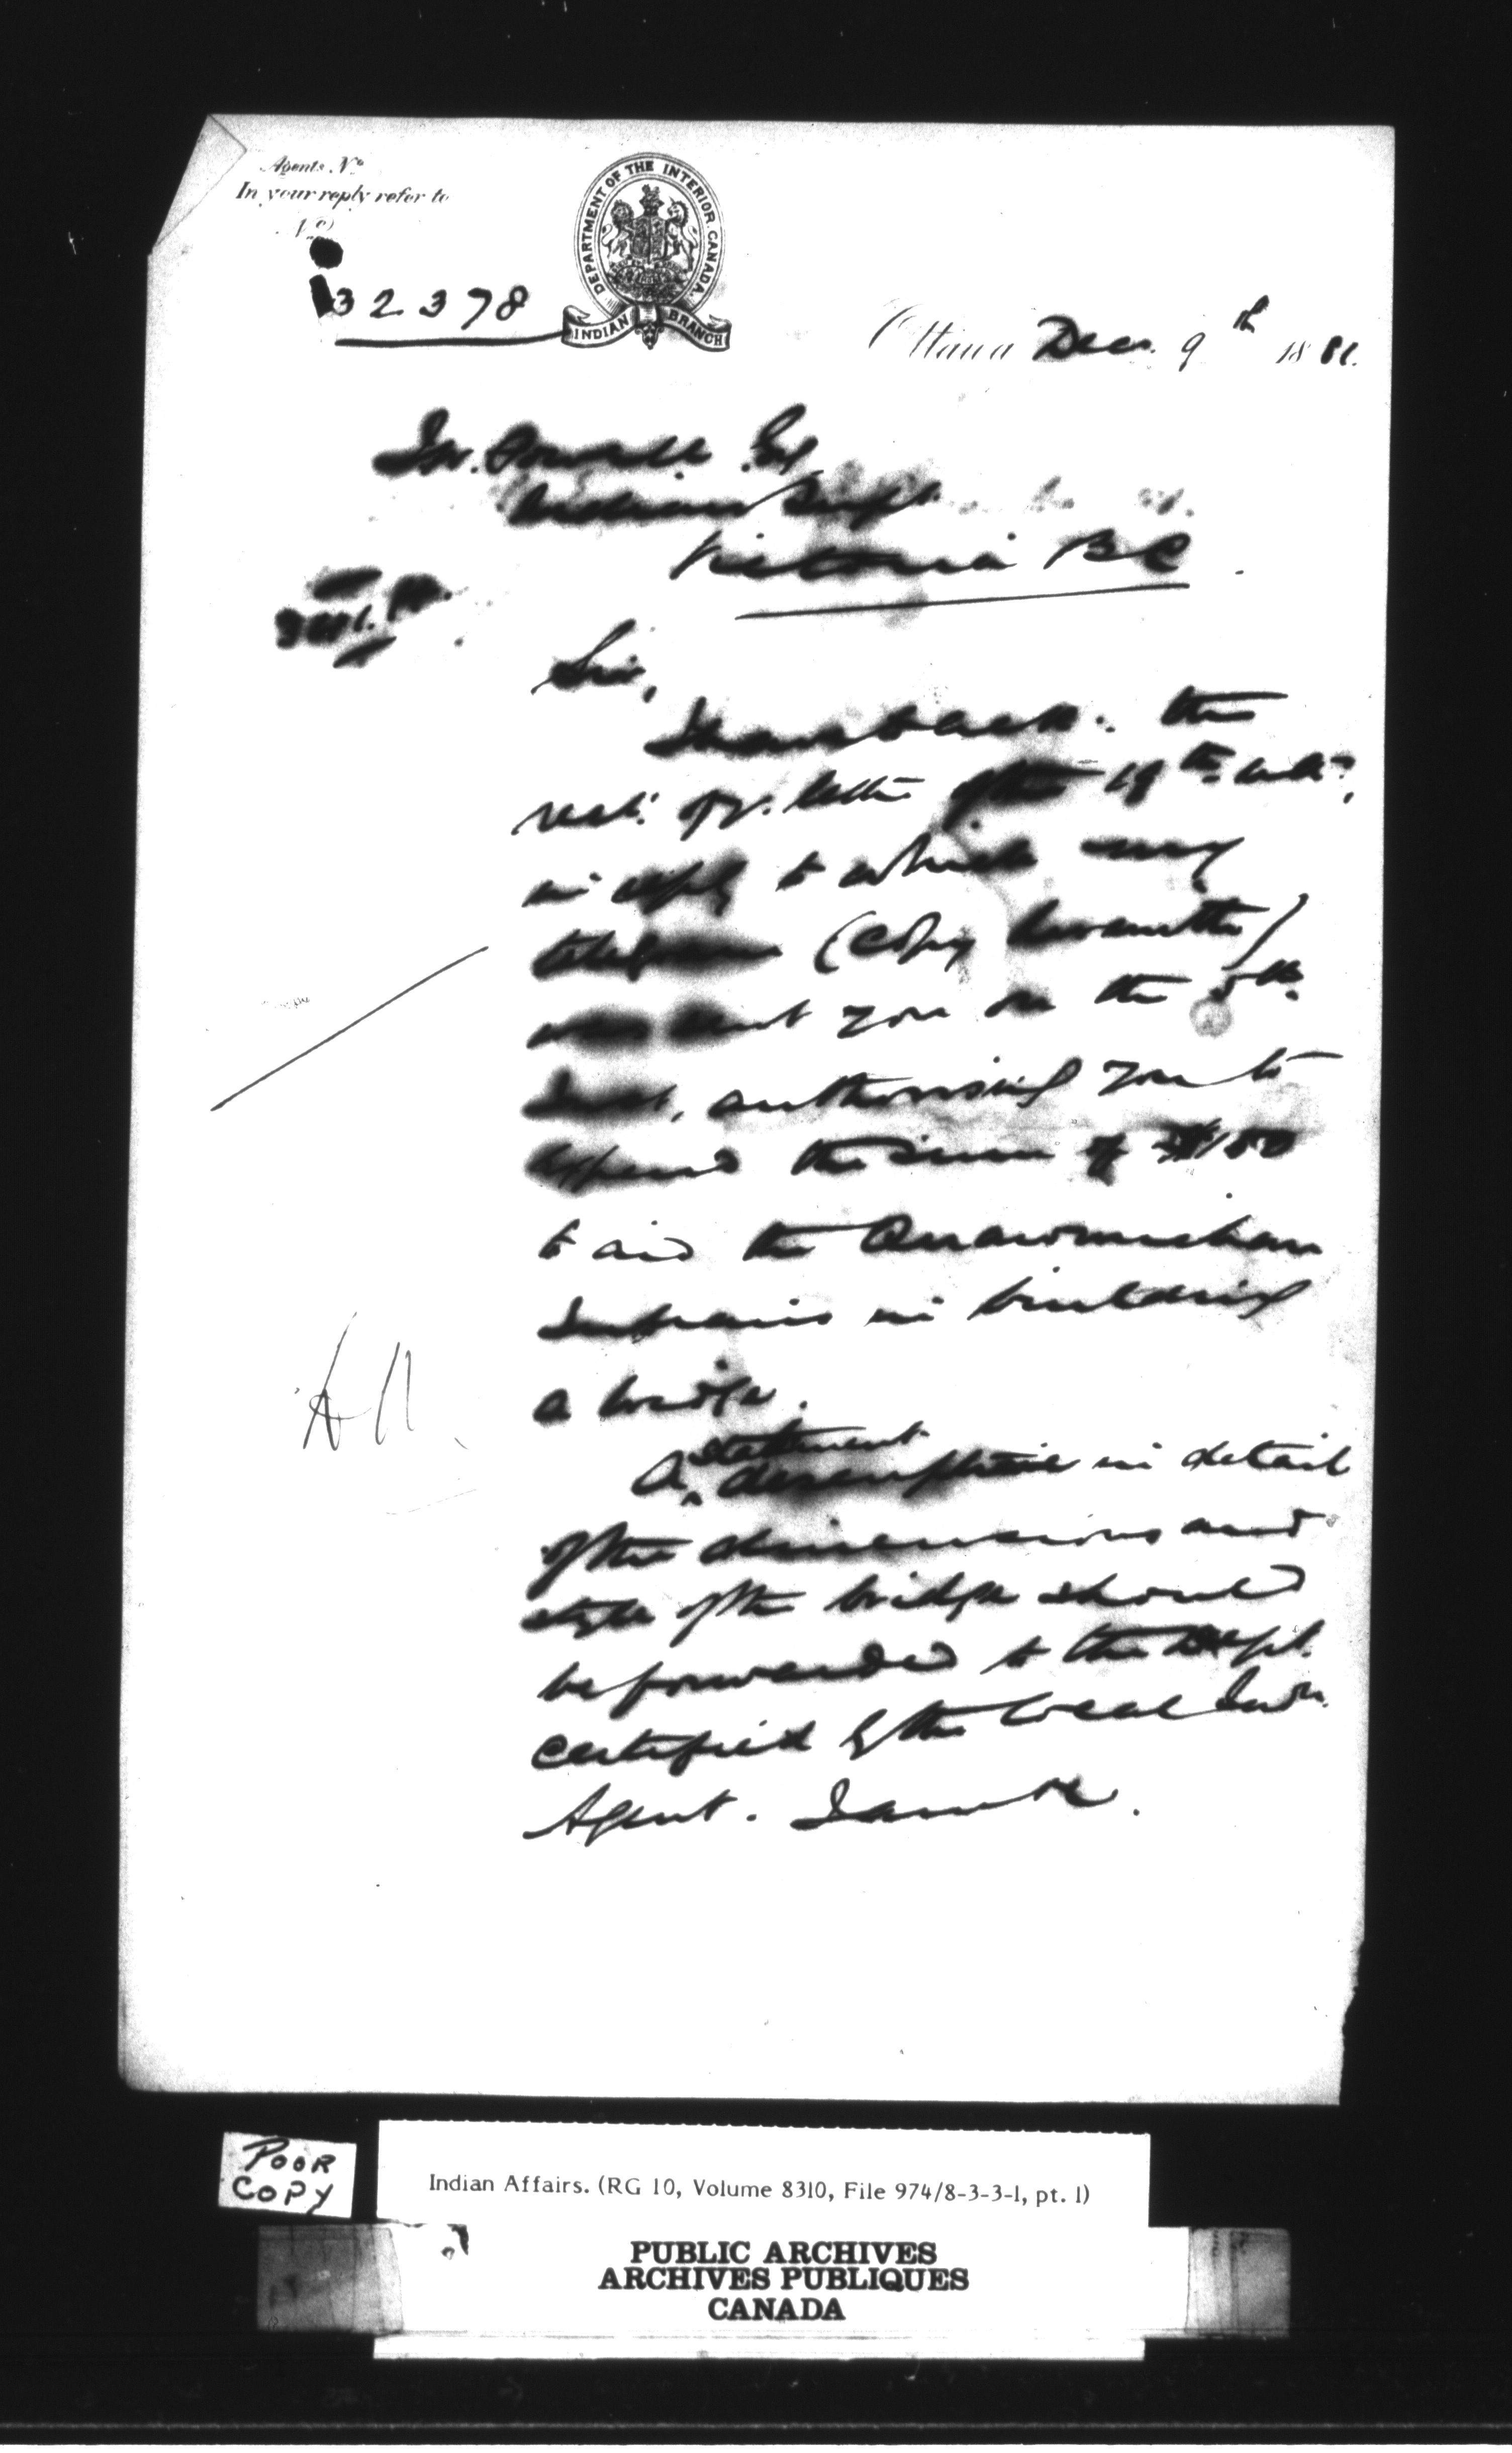 Agents No
In your reply refer to
No
32378
DEPARTMENT OF THE INTERIOR CANADA.
INDIAN BRANCH
Ottawa Dec. 9th 1881.
Powell Esq
Indian Supt
Victoria BC.
Sir,
the
rect. of yr. letter of the 19th ulto,
in reply to which my
telegram (copy herewith)
was sent you on the 5th.
Inst, authorising you to
expend the sum of $150
to aid the Quawmichan
Indians in building
a bridge.
A statement descriptive in detail
of the dimensions and
style of the bridge should
be forwarded to the Dept.
certified by the local Indn.
Agent. I am &c.
POOR
COPY
Indian Affairs. (RG 10, Volume 8310, File 974/8-3-3-1, pt. 1)
PUBLIC ARCHIVES
ARCHIVES PUBLIQUES
CANADA